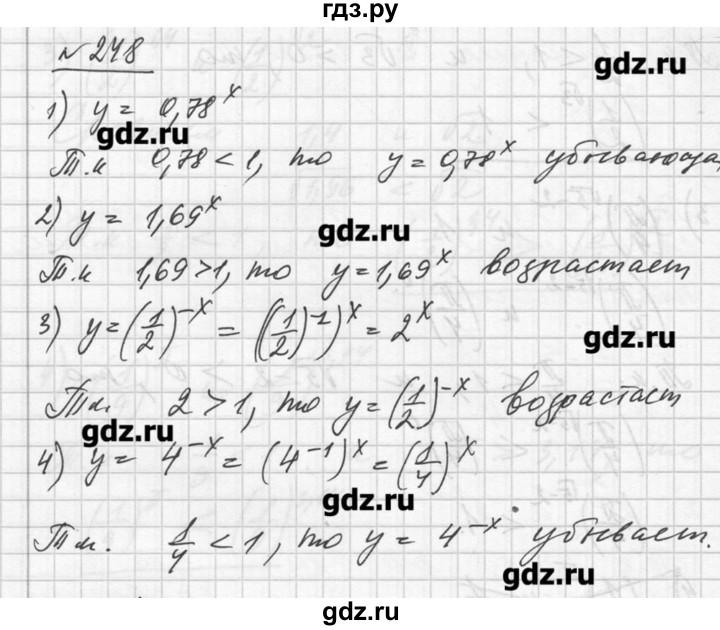 гдз.ру
№ 248
gdz.ru
1) y = 0,78^x
gdz.ru
Т.к 0,78 < 1, то y = 0,78^x убывающа
2) y = 1,69^x
gdz.ru
Т.к 1,69 > 1, то y = 1,69^x возрастает
3) y = (1/2)^{-x} = ((1/2)^{-1})^x = 2^x
gdz.ru
Т.к. 2 > 1, то y = (1/2)^{-x} возрастает
gdz.ru
4) y = 4^{-x} = (4^{-1})^x = (1/4)^x
gdz.ru
Т.к. 1/4 < 1, то y = 4^{-x} убывает.
gdz.ru
gdz.ru